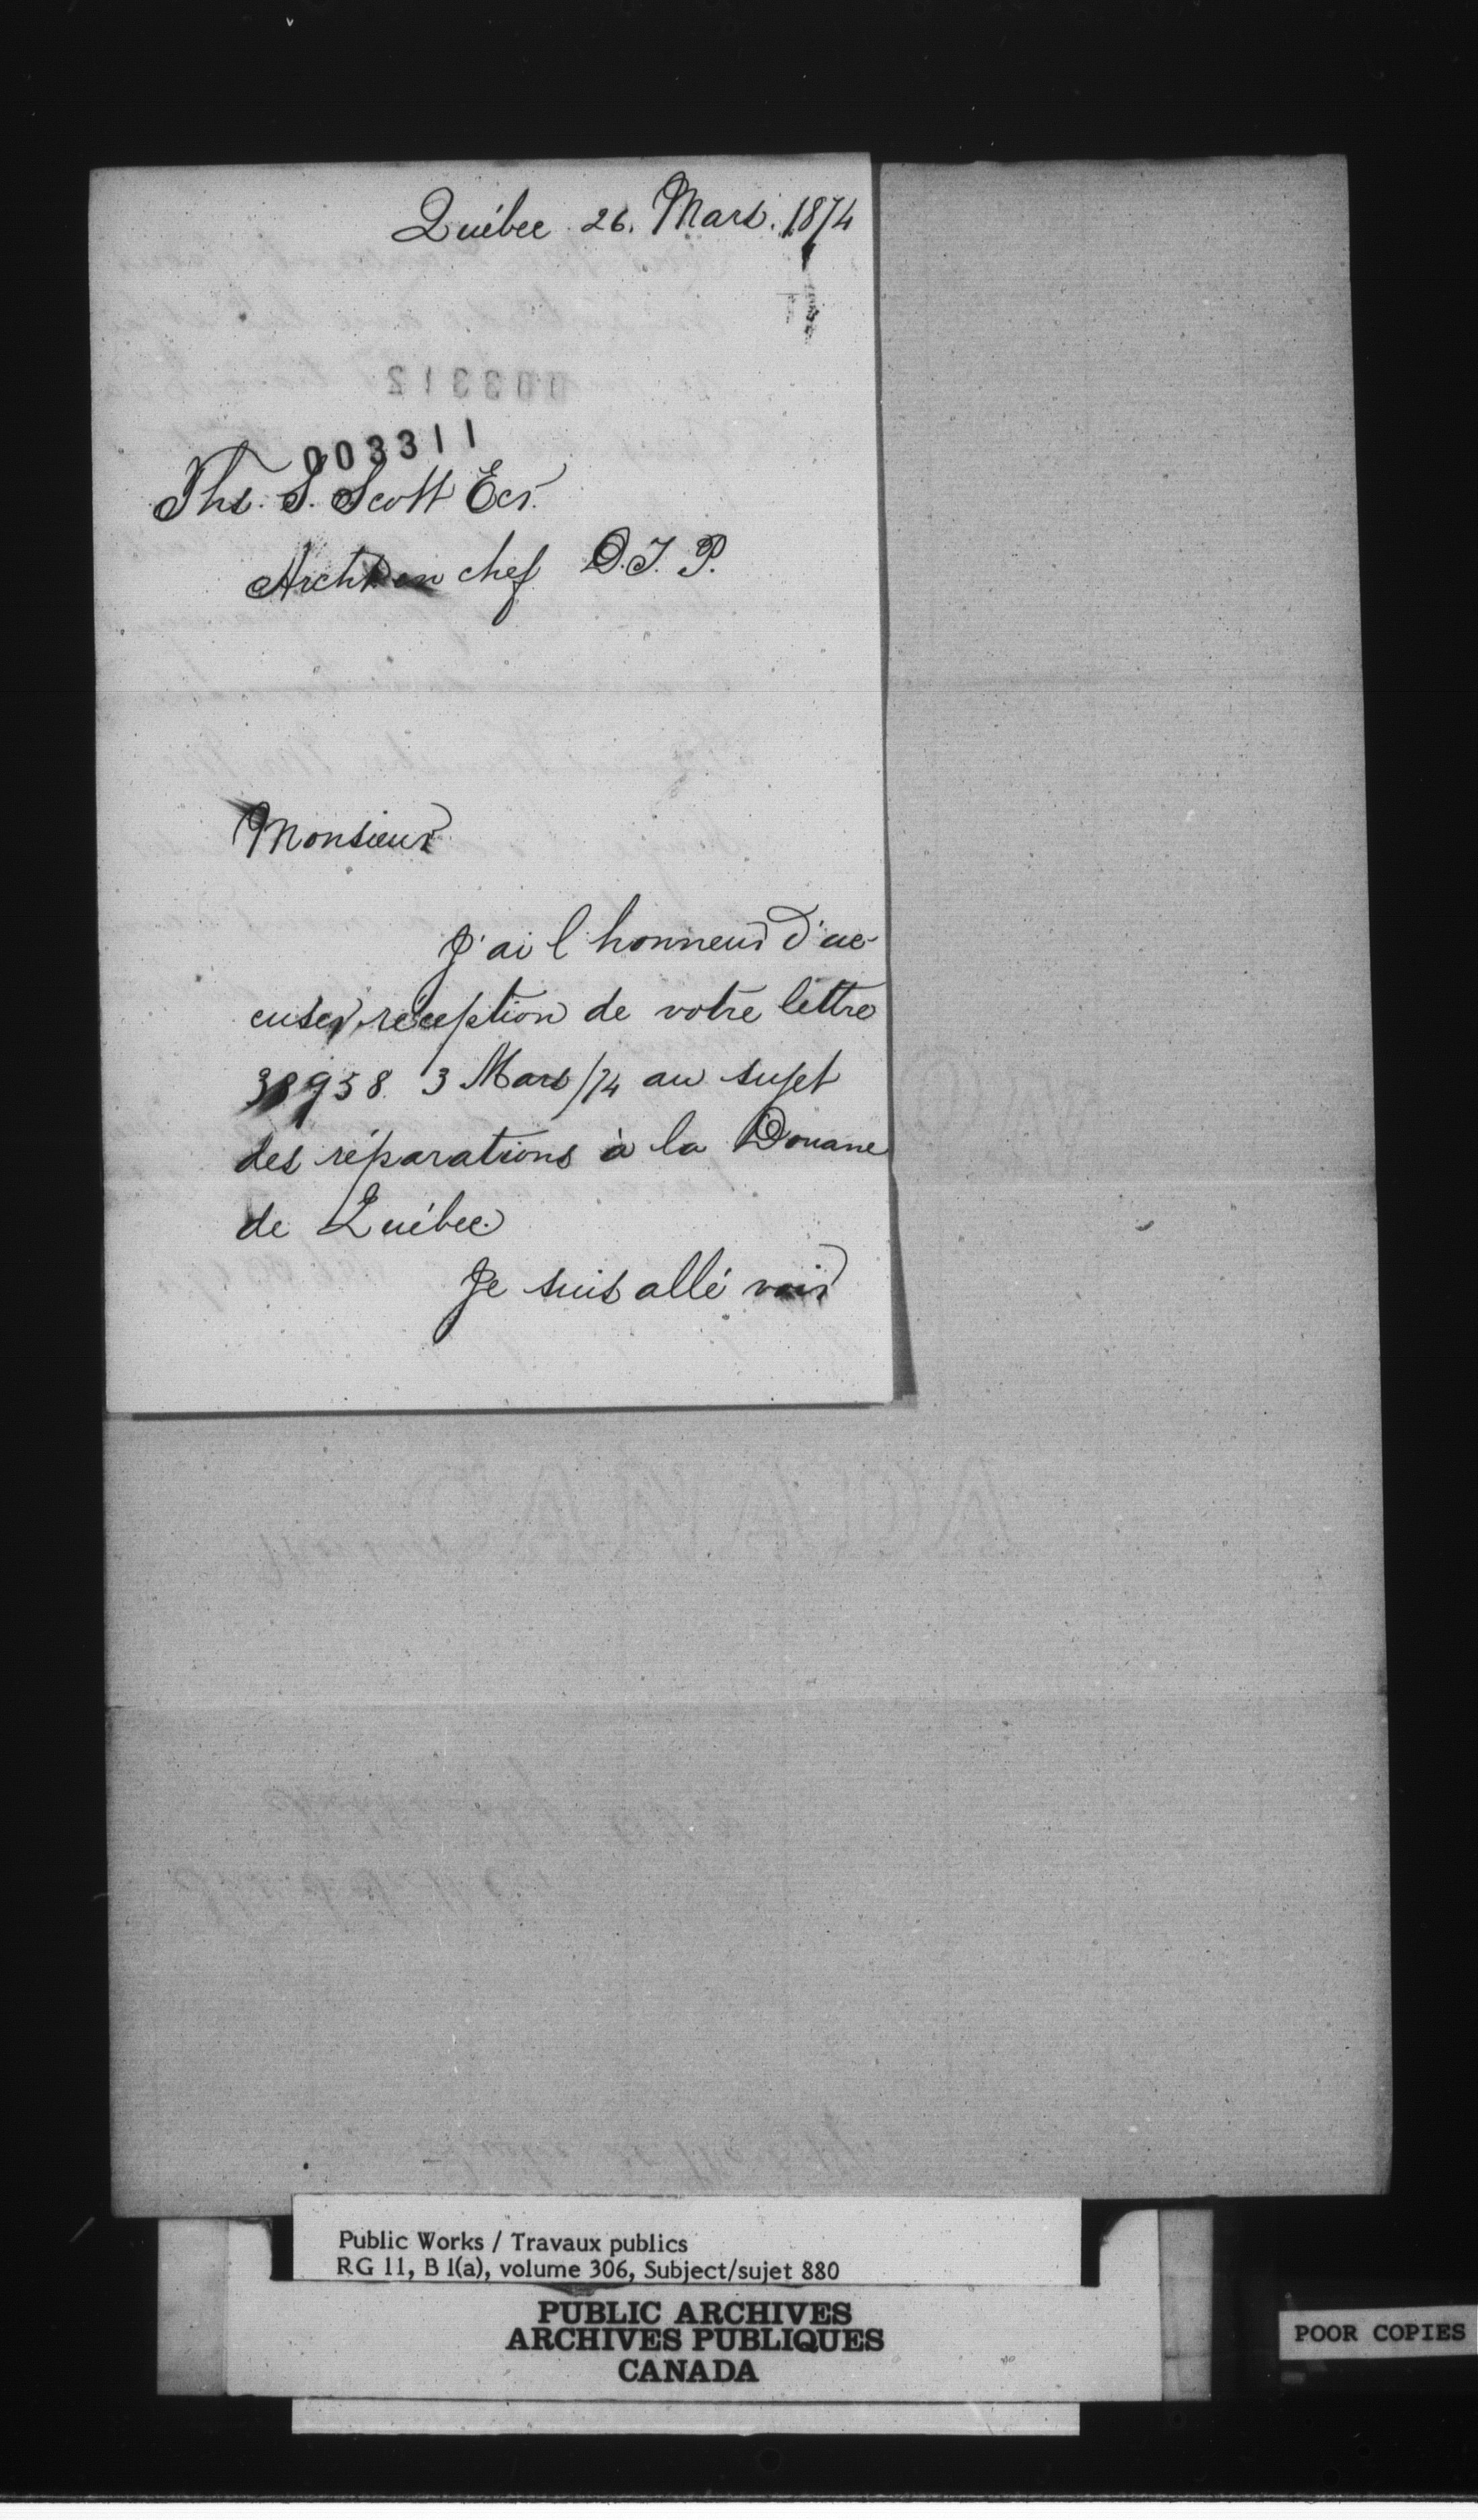 Québec 26. Mars. 1874
003312
003311
Ths. S. Scott Ecr.
Archt en chef D.T.P.
Monsieur
J'ai l'honneur d'ac-
cuser réception de votre lettre
38958. 3 Mars/74 au sujet
des réparations à la Douane
de Québec.
Je suis allé voir
Public Works / Travaux publics
RG 11, B 1(a), volume 306, Subject/sujet 880
PUBLIC ARCHIVES
ARCHIVES PUBLIQUES
CANADA
POOR COPIES